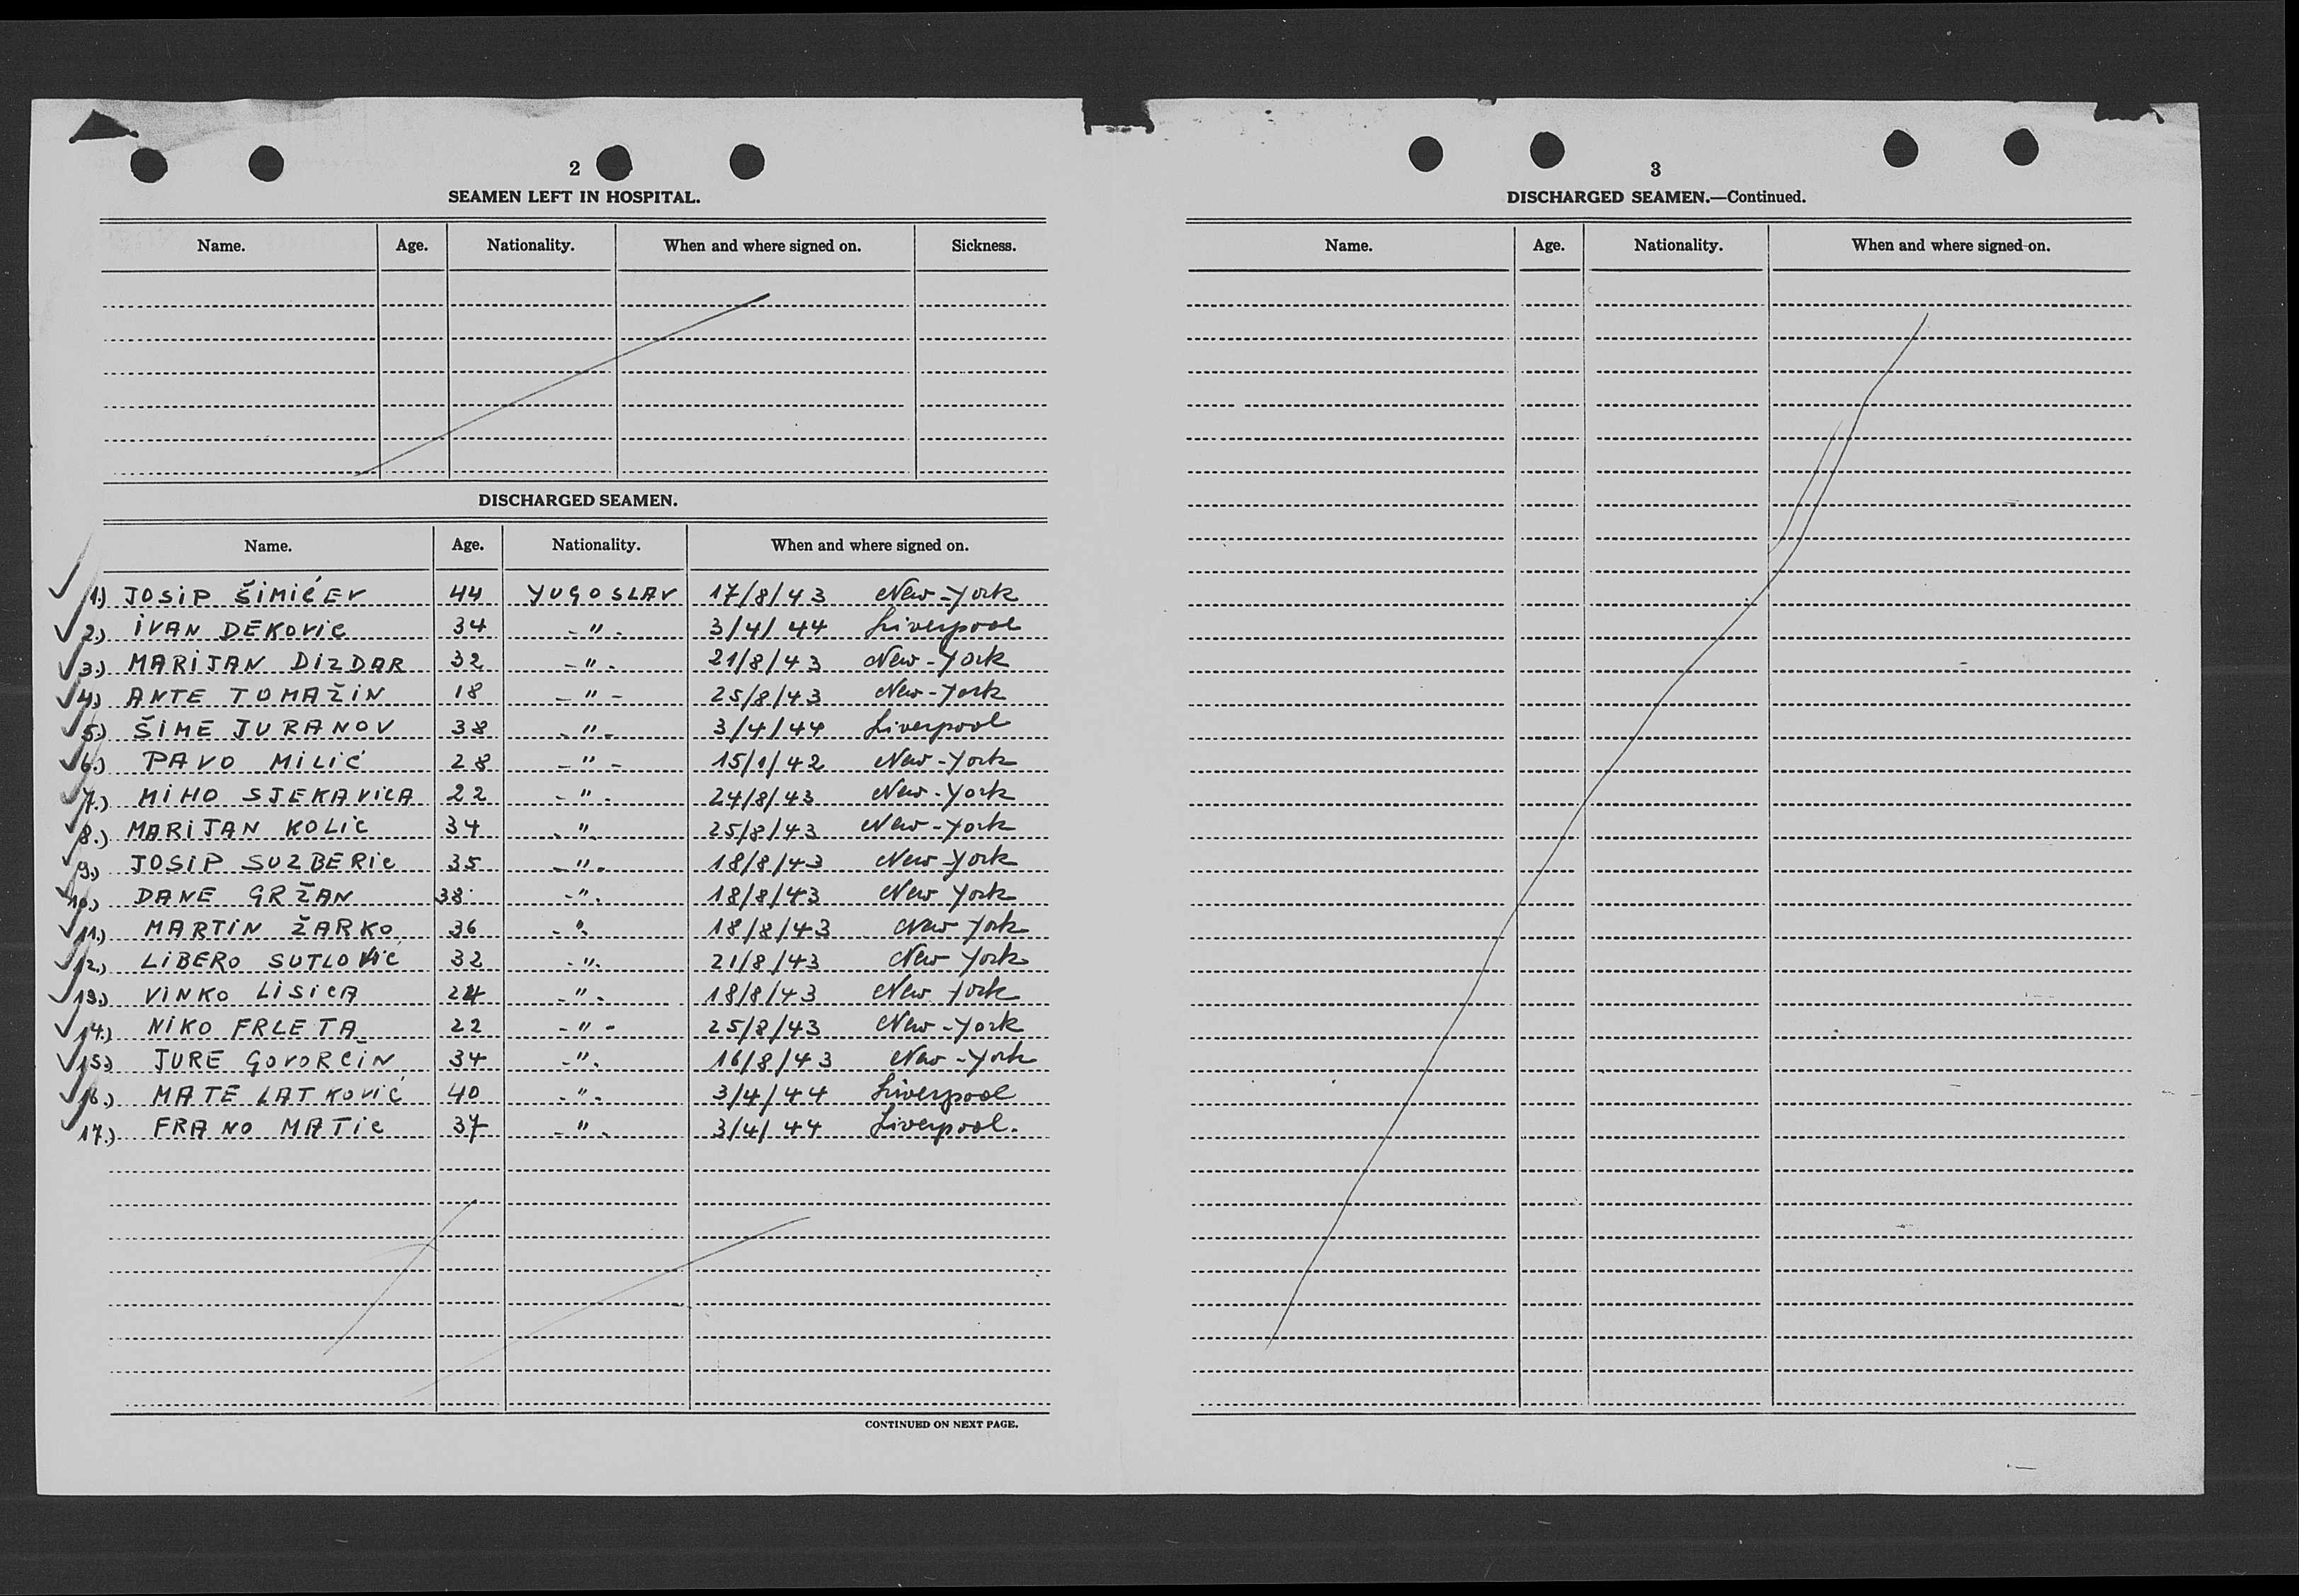 2
SEAMEN LEFT IN HOSPITAL.
Name. Age. Nationality. When and where signed on. Sickness.
DISCHARGED SEAMEN.
Name. Age. Nationality. When and where signed on.
1.) JOSIP ŠIMIĆEV 44 YUGOSLAV 17/8/43 New-York
2.) IVAN DEKOVIC 34 -"- 3/4/44 Liverpool
3.) MARIJAN DIZDAR 32 -"- 21/8/43 New-York
4.) ANTE TOMAŽIN 18 -"- 25/8/43 New-York
5.) ŠIME JURANOV 38 -"- 3/4/44 Liverpool
6.) PAVO MILIĆ 28 -"- 15/1/42 New-York
7.) MIHO SJEKAVICA 22 -"- 24/8/43 New-York
8.) MARIJAN KOLIC 34 -"- 25/8/43 New-York
9.) JOSIP SUZBERIC 35 -"- 18/8/43 New-York
10.) DANE GRŽAN 38 -"- 18/8/43 New York
11.) MARTIN ŽARKO 36 -"- 18/8/43 New York
12.) LIBERO SUTLOVIĆ 32 -"- 21/8/43 New York
13.) VINKO LISICA 24 -"- 18/8/43 New York
14.) NIKO FRLETA 22 -"- 25/8/43 New-York
15.) JURE GOVORCIN 34 -"- 16/8/43 New-York
16.) MATE LATKOVIĆ 40 -"- 3/4/44 Liverpool
17.) FRANO MATIC 37 -"- 3/4/44 Liverpool.
CONTINUED ON NEXT PAGE.
3
DISCHARGED SEAMEN.—Continued.
Name. Age. Nationality. When and where signed on.